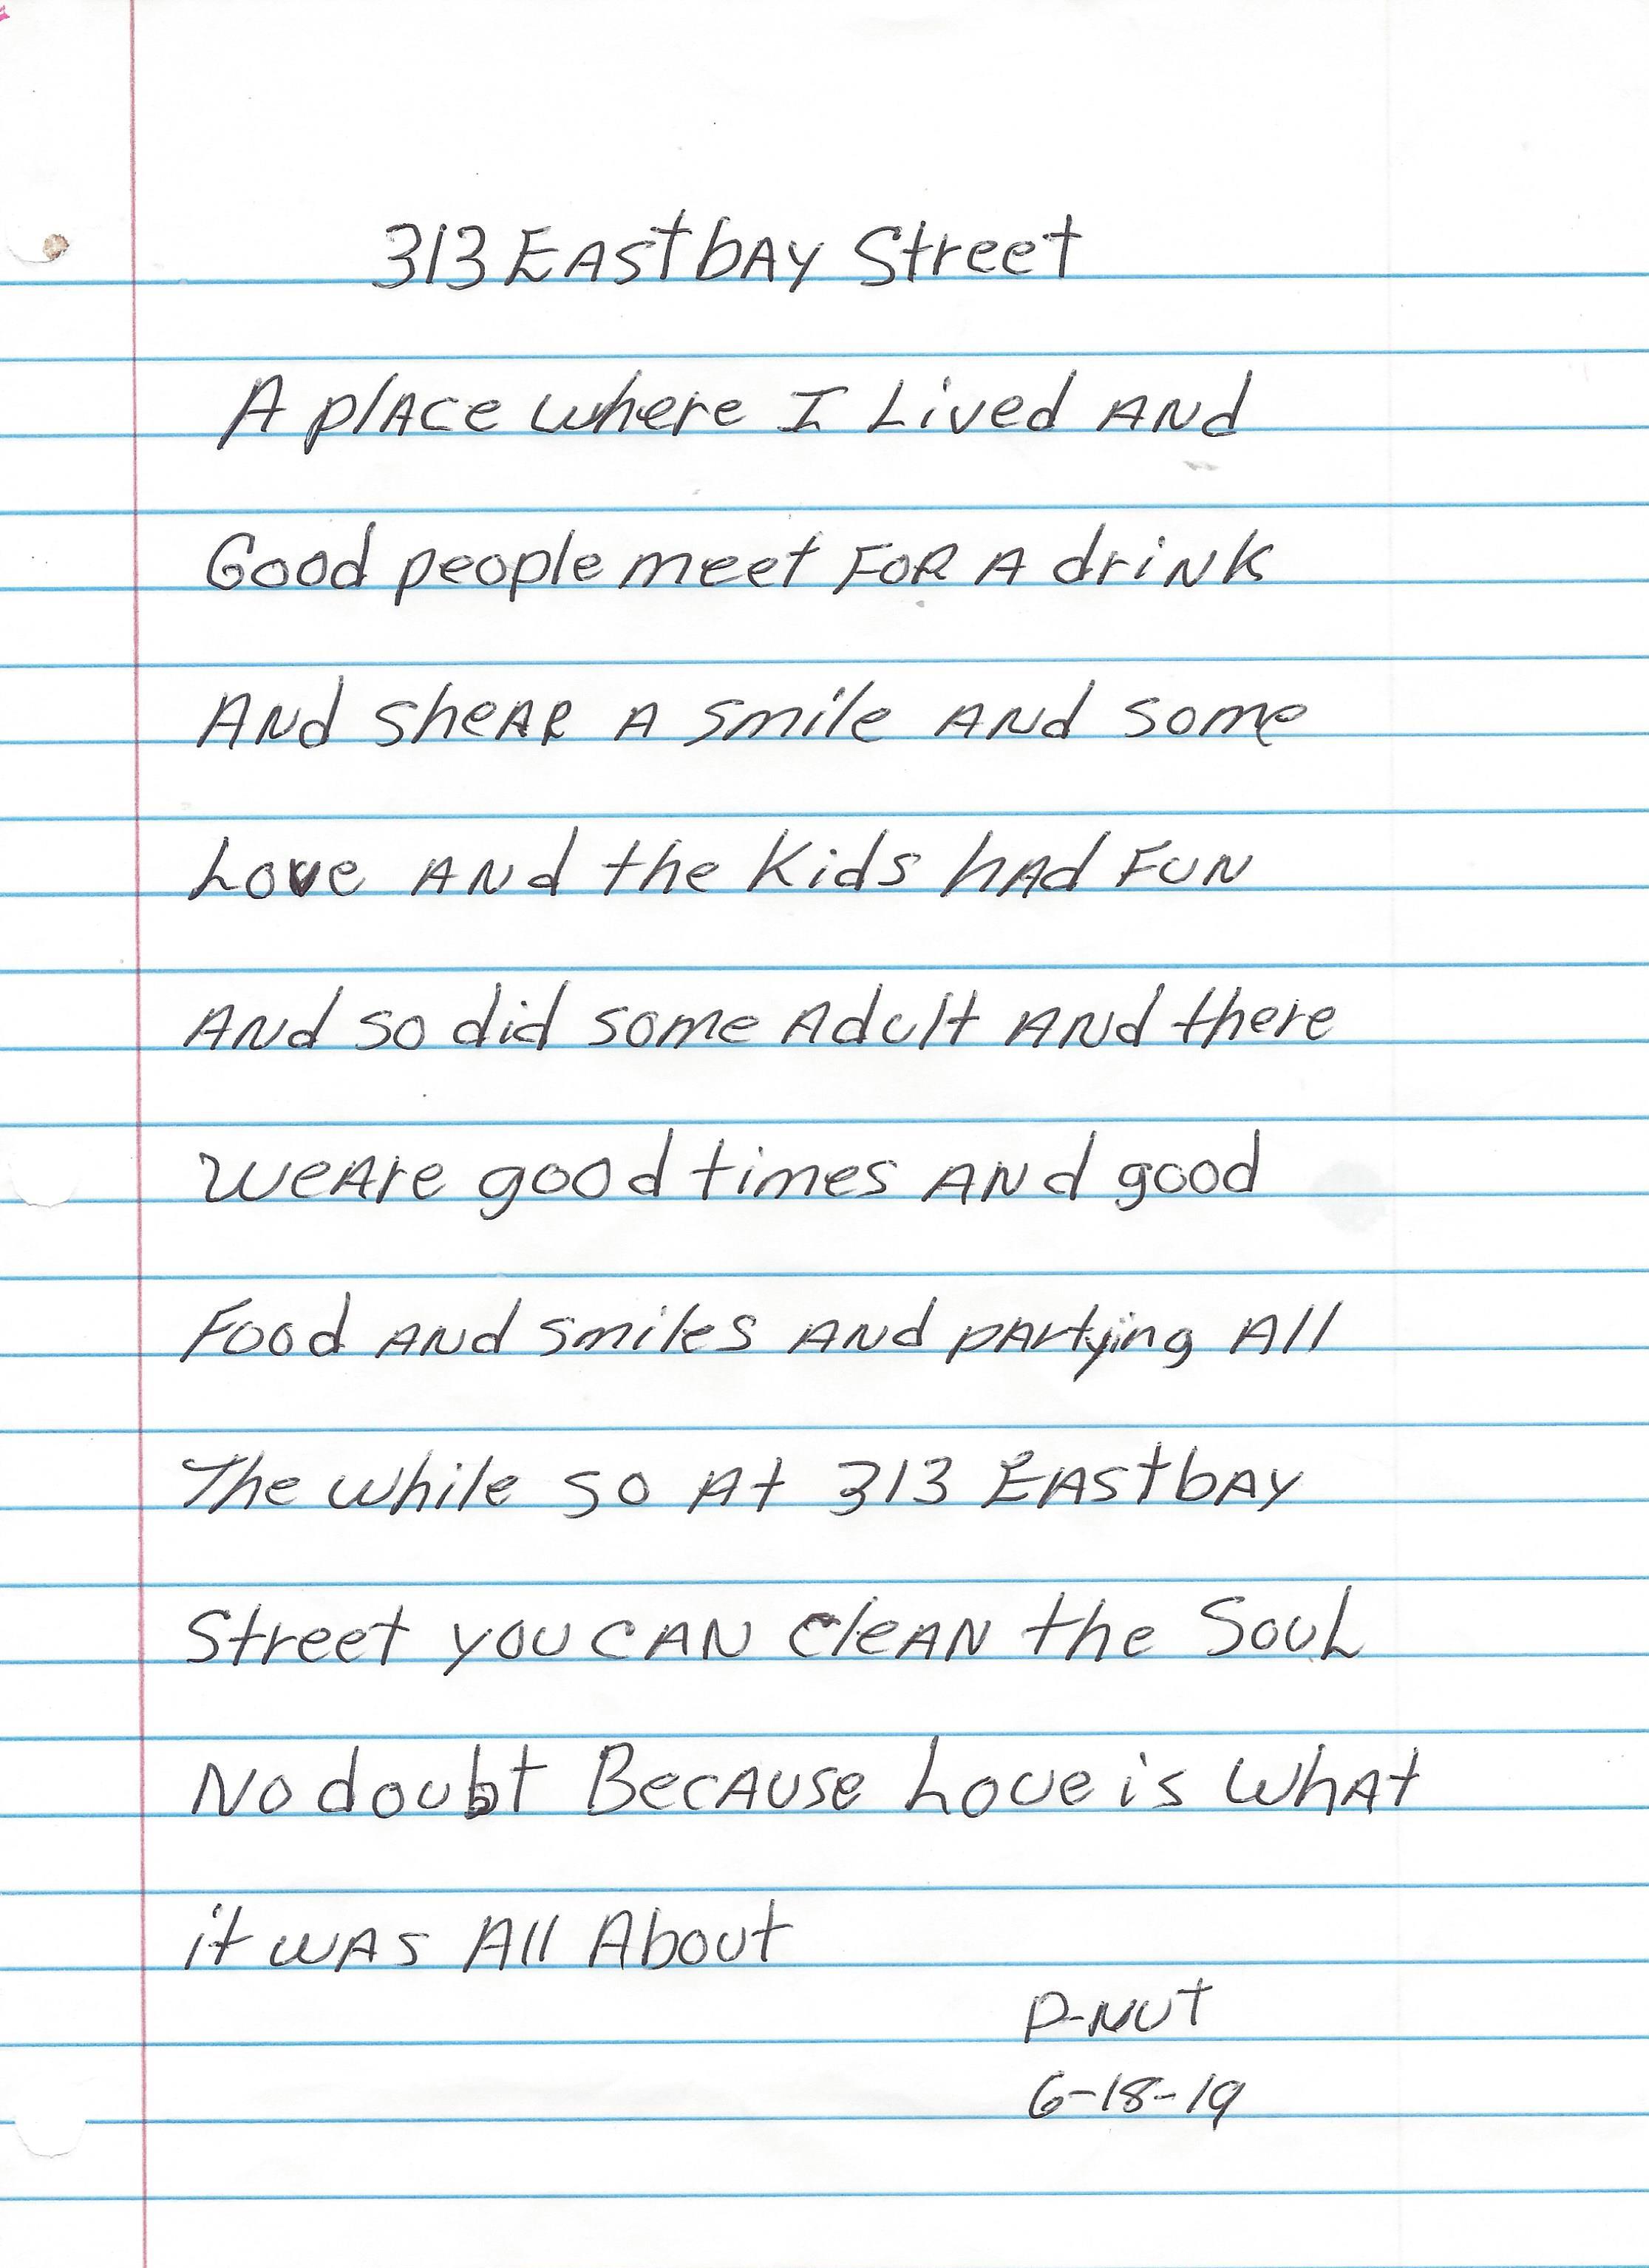 313 EAstbAy Street
A plAce where I Lived ANd
Good people meet FOR A driNK
ANd sheAR A smile ANd some
Love ANd the Kids hAd FUN
ANd so did some Adult ANd there
weAre good times ANd good
Food ANd smiles ANd pArtying All
The while so At 313 EAstbAy
Street you CAN cleAN the SouL
No doubt BecAuse Love is whAt
it wAs All About
P-NUT
6-18-19